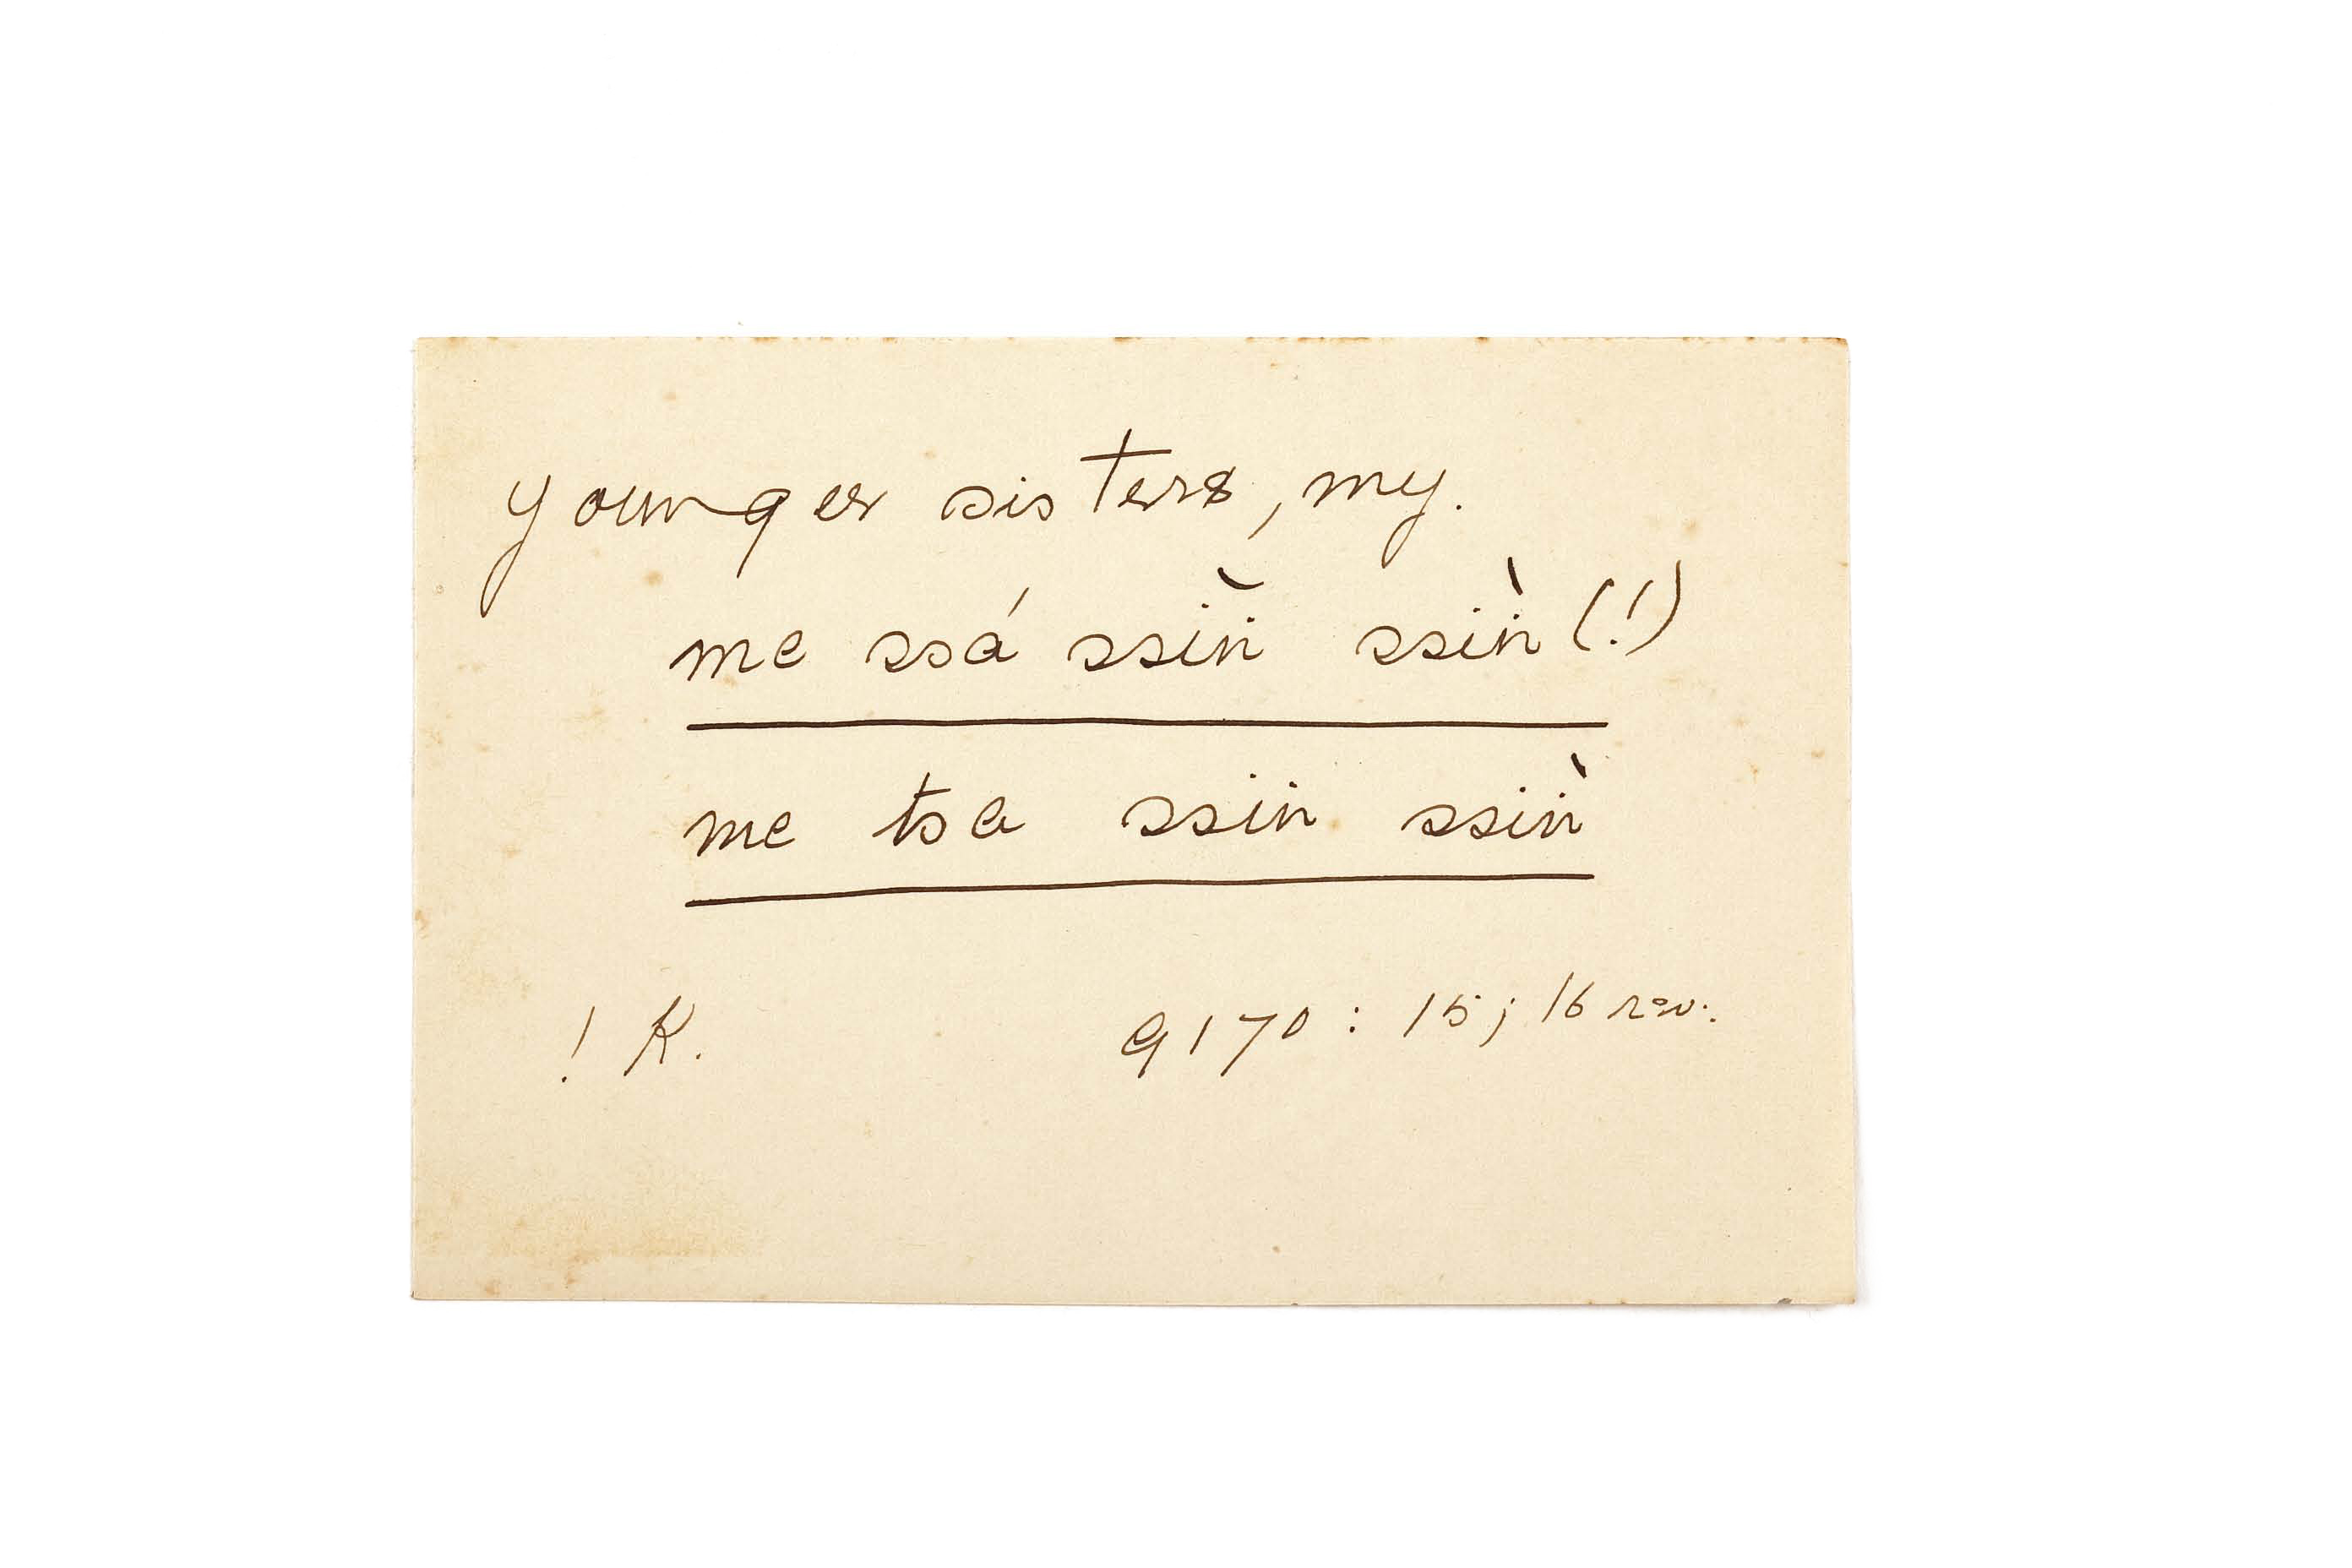 younger sisters, my.
me ssá ssiṅ̀ ssiṅ̀ (!)
me tsa ssiṅ ssiṅ̀
! K. 9170 : 15 ; 16 rev.